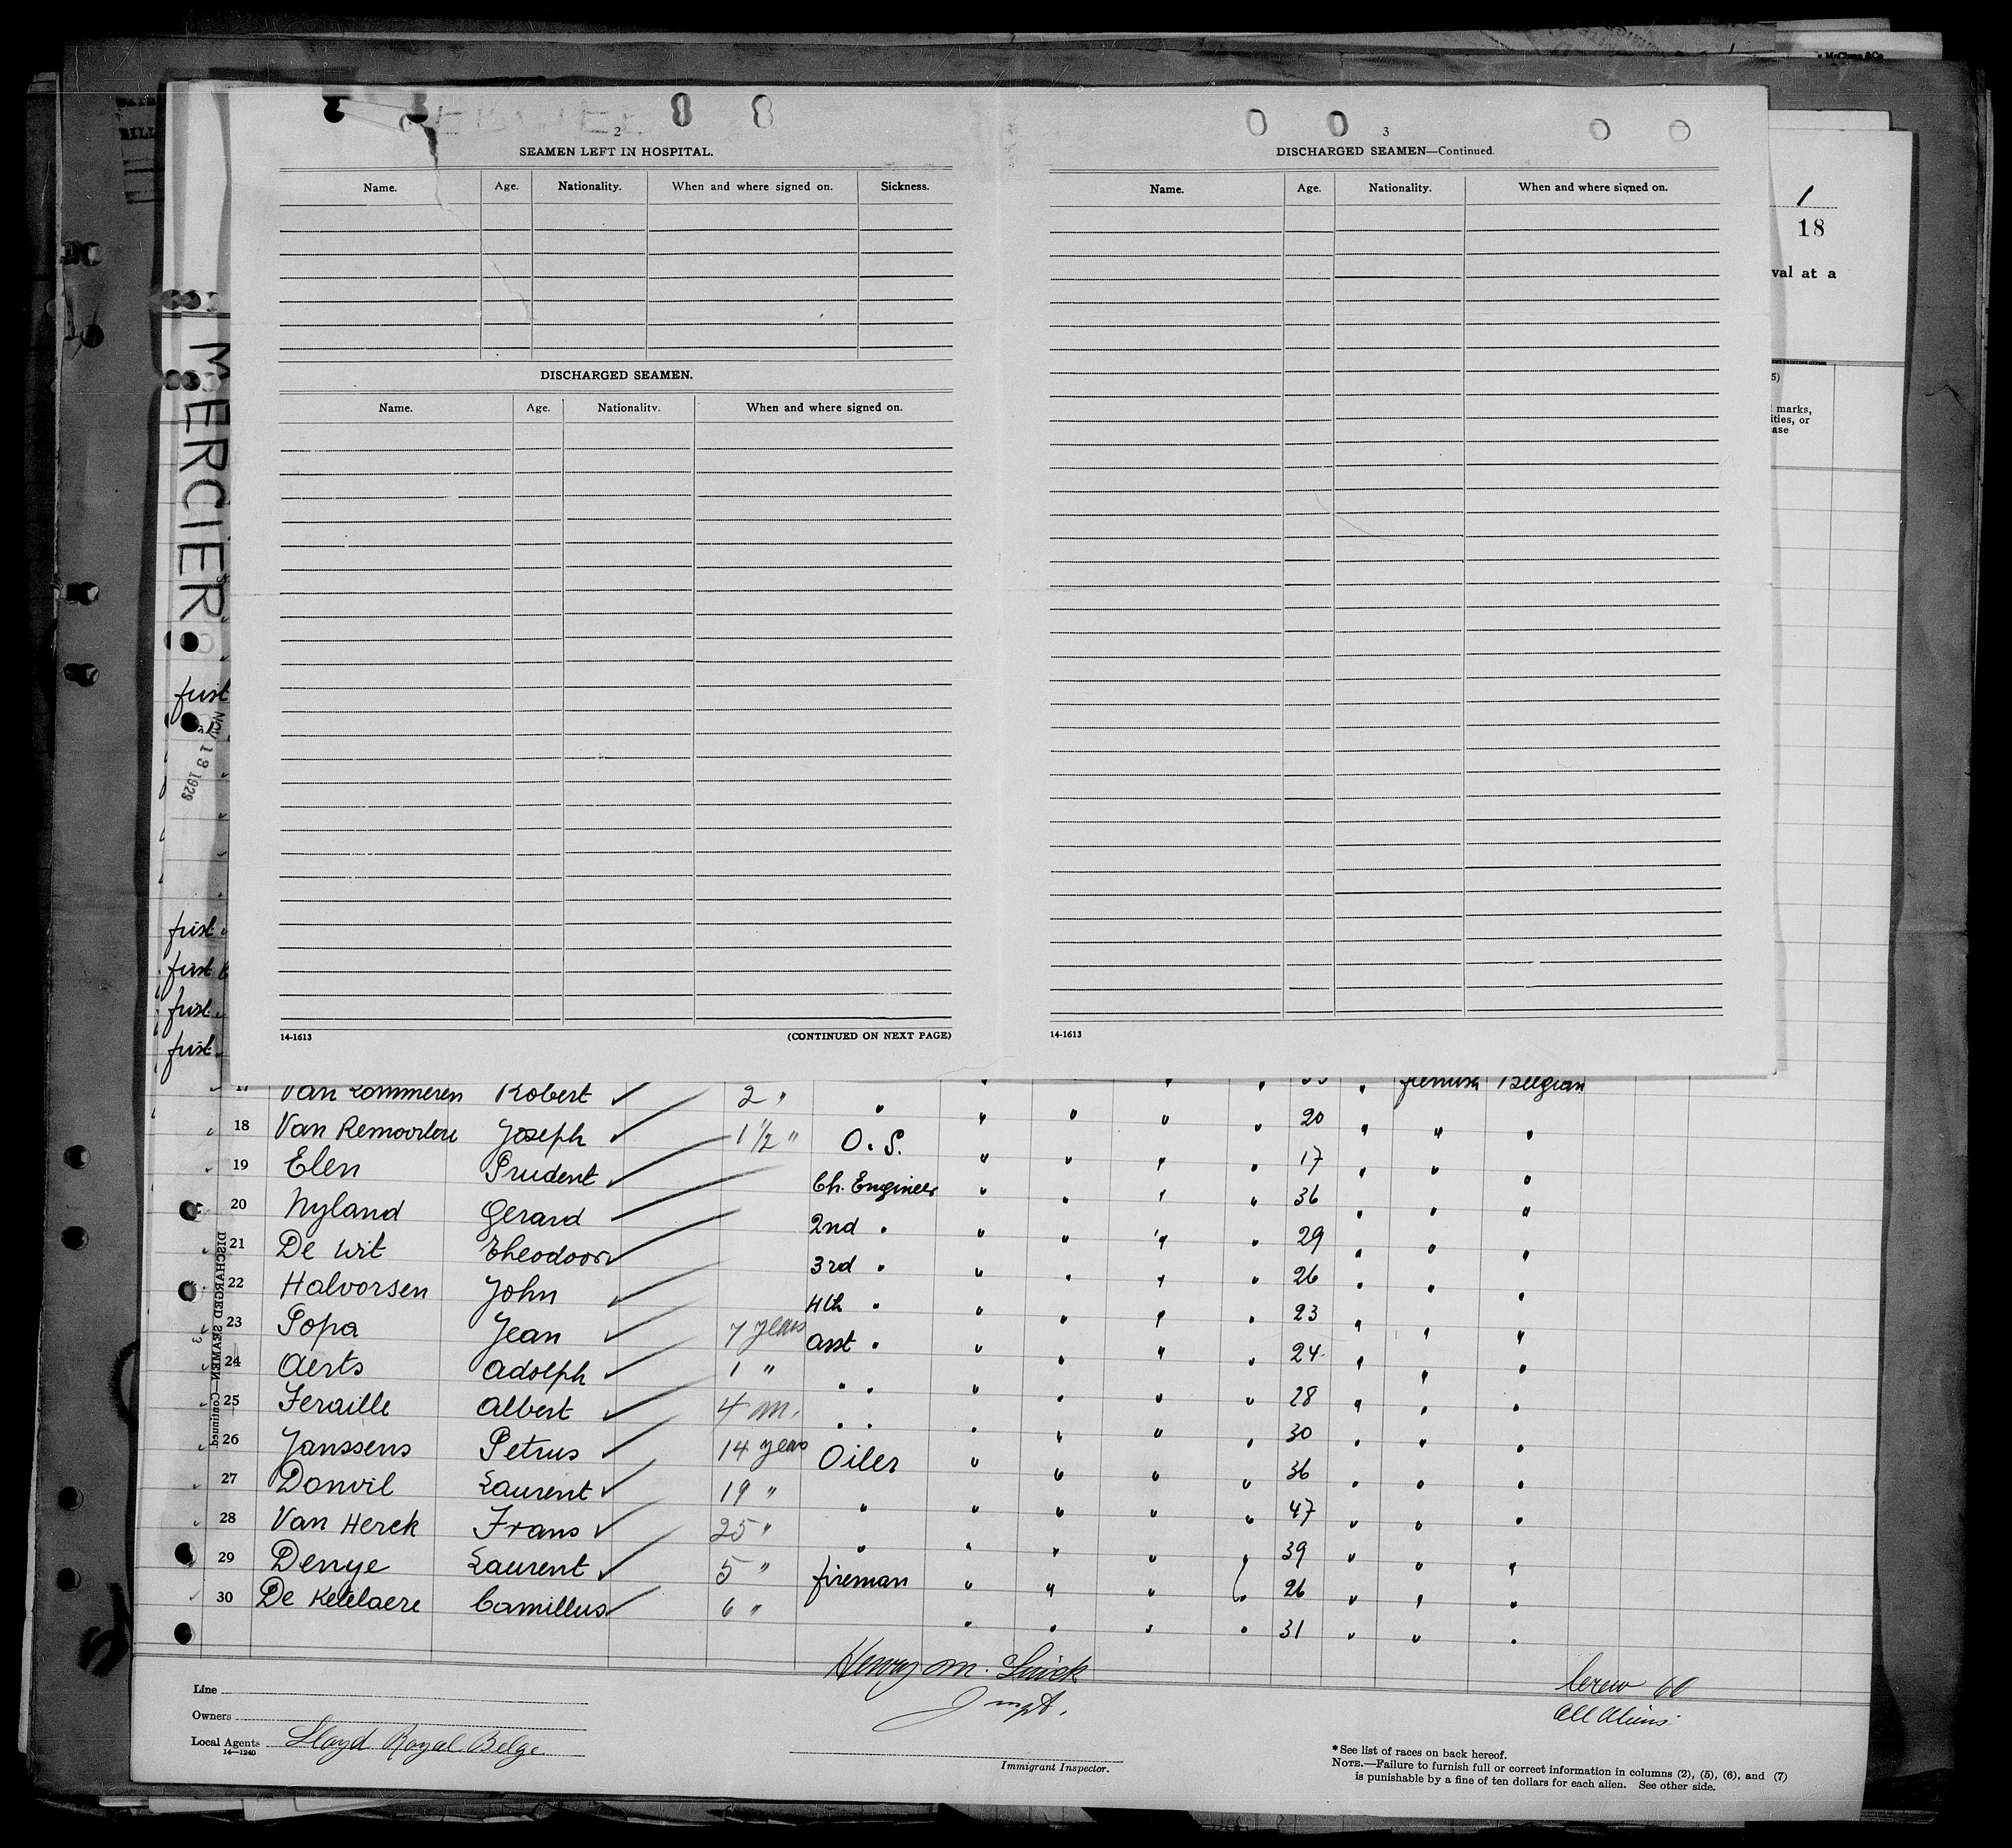 2
SEAMEN LEFT IN HOSPITAL.
Name. Age. Nationality. When and where signed on. Sickness.
DISCHARGED SEAMEN.
Name. Age. Nationality. When and where signed on.
14-1613 (CONTINUED ON NEXT PAGE)
3
DISCHARGED SEAMEN—Continued.
Name. Age. Nationality. When and where signed on.
14-1613
1
18
val at a
5)
marks,
ities, or
ase
MERCIER
first
NOV 13 1929
first
first
first
first
DISCHARGED SEAMEN—Continued.
3
17 Van Lommeren Robert ✓ 2 " " " " " " 33 " flemish Belgian
18 Van Remoortere Joseph ✓ 1 1/2 " O.S. " " " " 20 " " "
19 Elen Prudent ✓ Ch. Engineer " " " " 17 " " "
20 Nyland Gerard 2nd " " " " " 36 " " "
21 De Wit Theodoor ✓ 3rd " " " " " 29 " " "
22 Halvorsen John ✓ 4th " " " " " 26 " " "
23 Popa Jean ✓ 7 years Asst " " " " " 23 " " "
24 Aerts Adolph ✓ 1 " " " " " " " 24 " " "
25 Feraille Albert ✓ 4 m. " " " " " " 28 " " "
26 Janssens Petrus ✓ 14 years Oiler " " " " 30 " " "
27 Donvil Laurent ✓ 19 " " " " " " 36 " " "
28 Van Herck Frans ✓ 25 " " " " " " 47 " " "
29 Denye Laurent ✓ 5 " fireman " " " " 39 " " "
30 De Ketelaere Camillus ✓ 6 " " " " " 26 " " "
31 " " "
Henry M.
Inspt.
Crew 60
All Aliens
Line
Owners
Local Agents Lloyd Royal Belge
14—1240
Immigrant Inspector.
*See list of races on back hereof.
NOTE.—Failure to furnish full or correct information in columns (2), (5), (6), and (7)
is punishable by a fine of ten dollars for each alien. See other side.